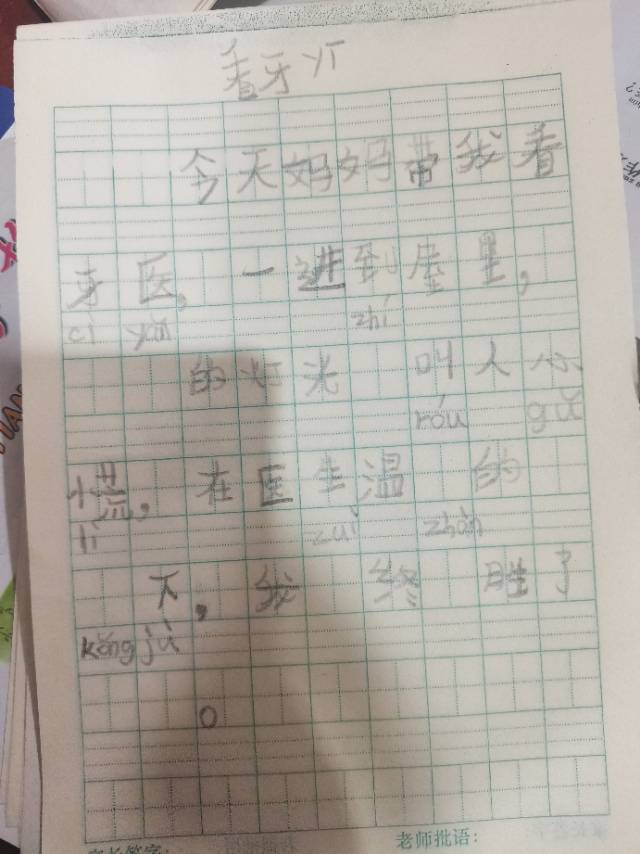 看牙
今天妈妈带我看
牙医,一进到座里,
cì yǎn zhí
的灯光 叫人心
róu gǔ
慌,在医生温 的
lì zuì zhàn
下,我 终 胜了
kǒng jù
。
老师批语: